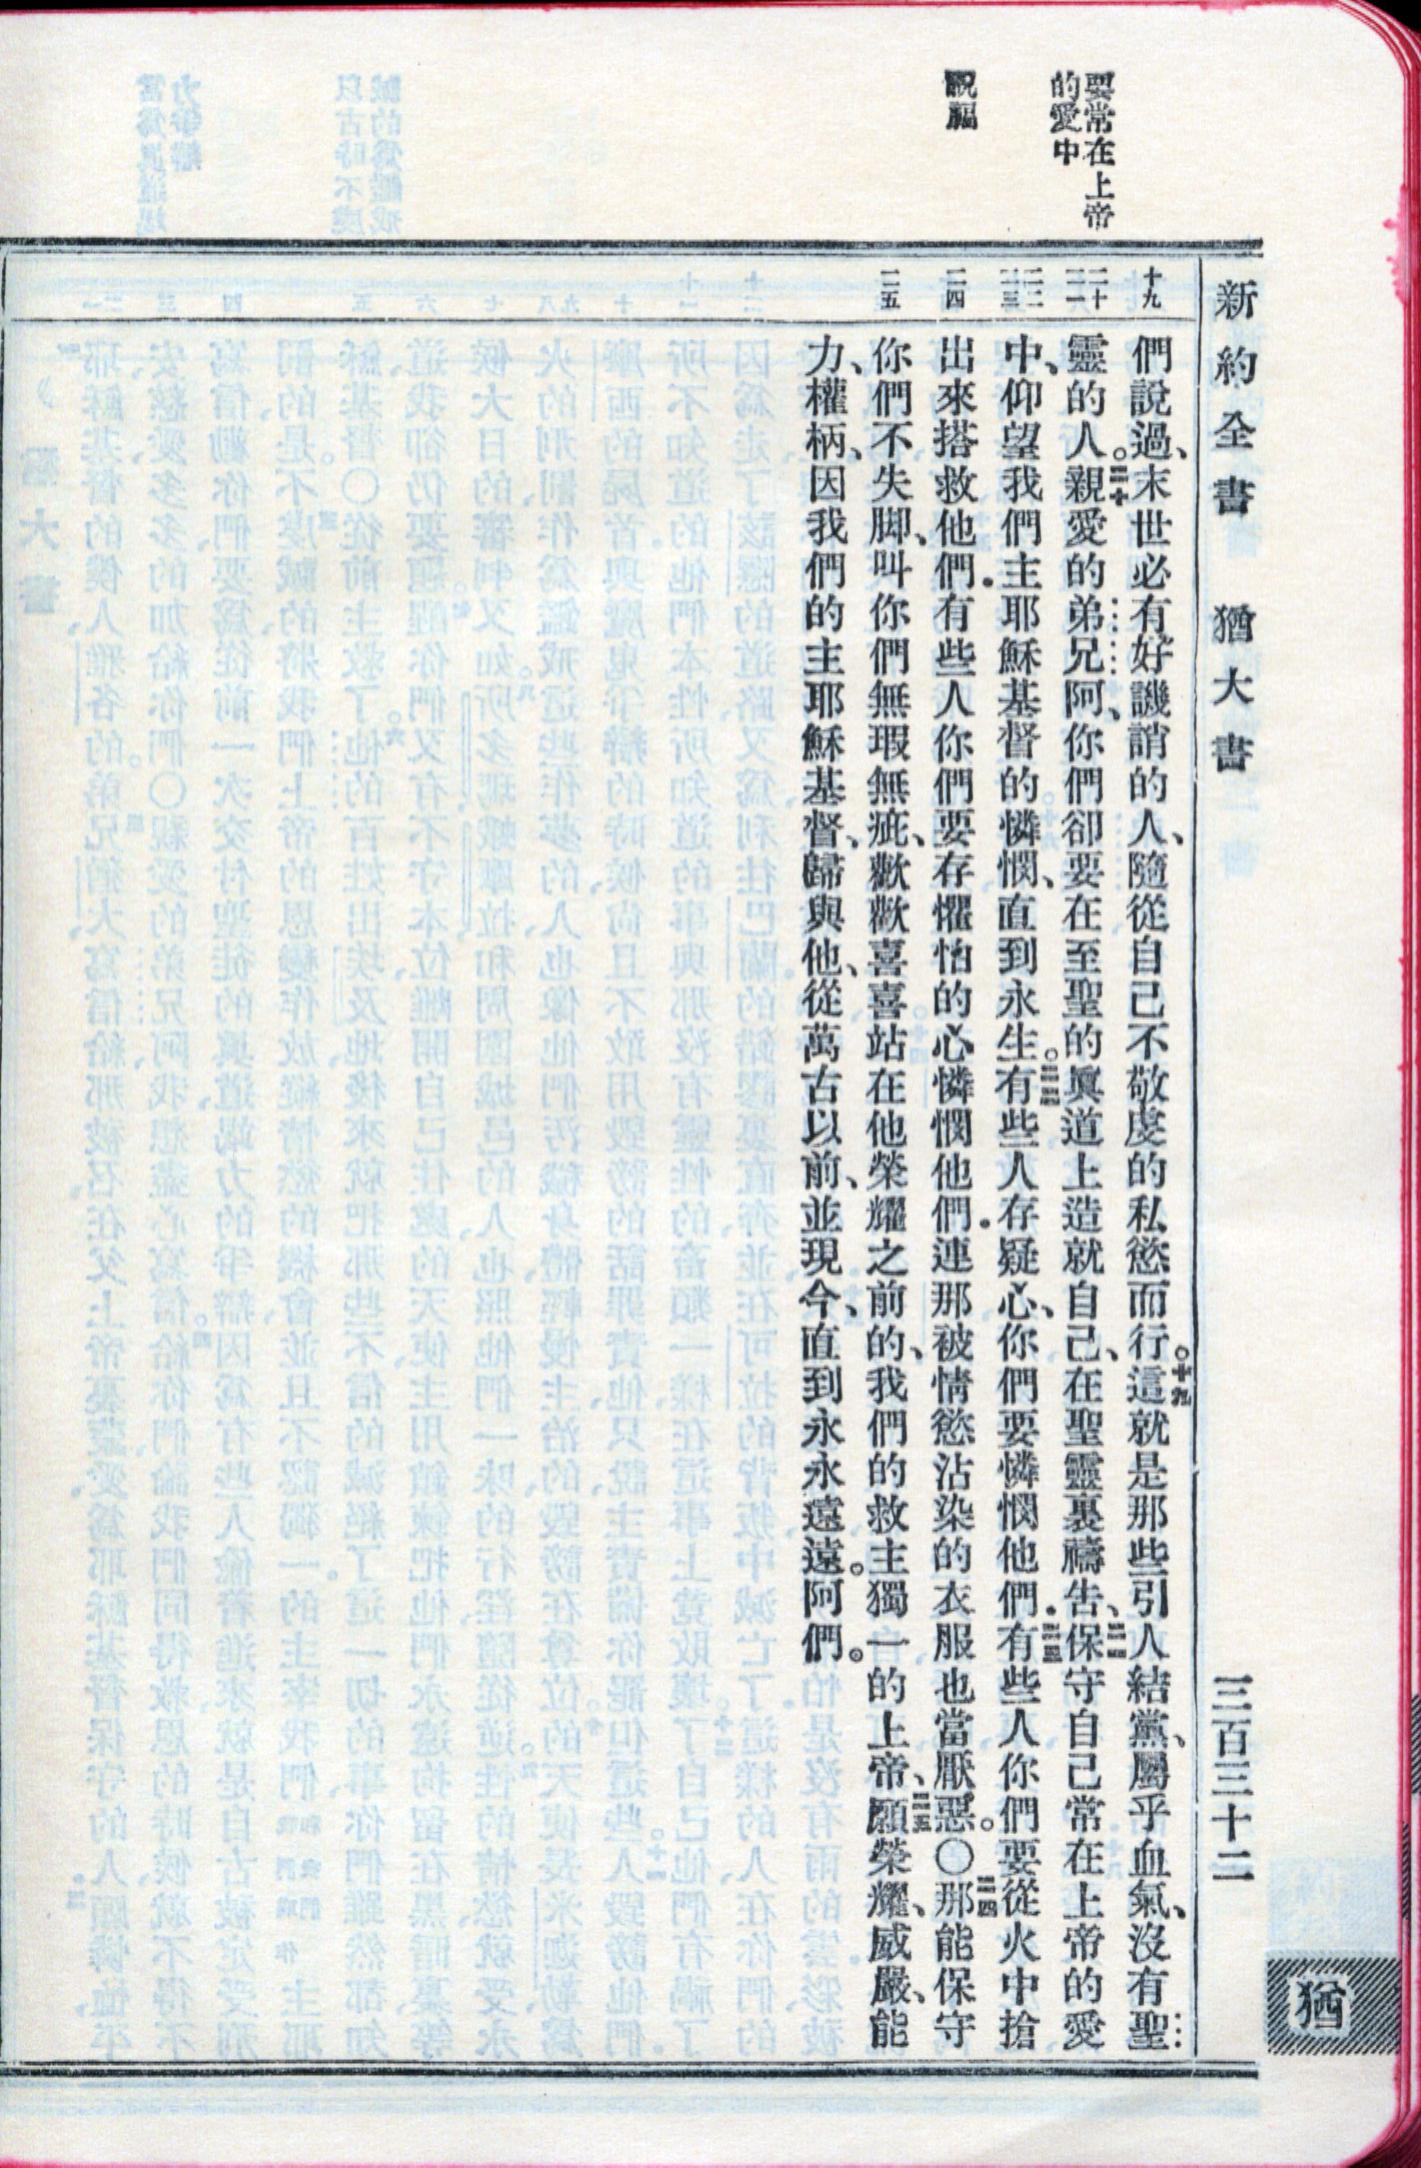 新約全書 猶大書 三百三十二
猶
要常在上帝
的愛中
祝福
十九
二十
二一
二二
二三
二四
二五
們說過、末世必有好譏誚的人、隨從自己不敬虔的私慾而行。十九這就是那些引人結黨、屬乎血氣、沒有聖
靈的人。二十親愛的弟兄阿、你們卻要在至聖的眞道上造就自己、在聖靈裏禱告、二一保守自己常在上帝的愛
中、仰望我們主耶穌基督的憐憫、直到永生。二二有些人存疑心、你們要憐憫他們．二三有些人你們要從火中搶
出來搭救他們．有些人你們要存懼怕的心憐憫他們．連那被情慾沾染的衣服也當厭惡。〇二四那能保守
你們不失脚、叫你們無瑕無疵、歡歡喜喜站在他榮耀之前的、我們的救主獨一的上帝、二五願榮耀、威嚴、能
力、權柄、因我們的主耶穌基督、歸與他、從萬古以前、並現今、直到永永遠遠。阿們。